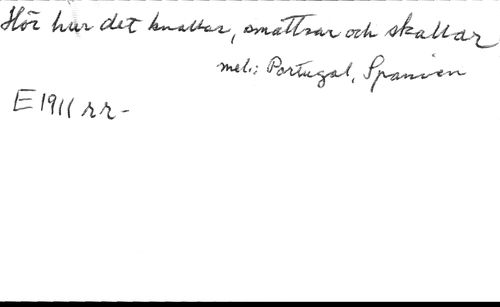 Hör hur det knallar, smattrar och skallar
mel.: Portugal, Spanien
E 1911 rr -